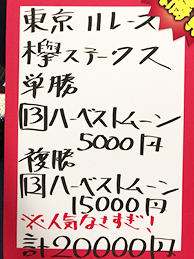 東京11レース
欅ステークス
単勝
13ハーベストムーン
5000円
複勝
13ハーベストムーン
15000円
※人気なさすぎ!
計20000円